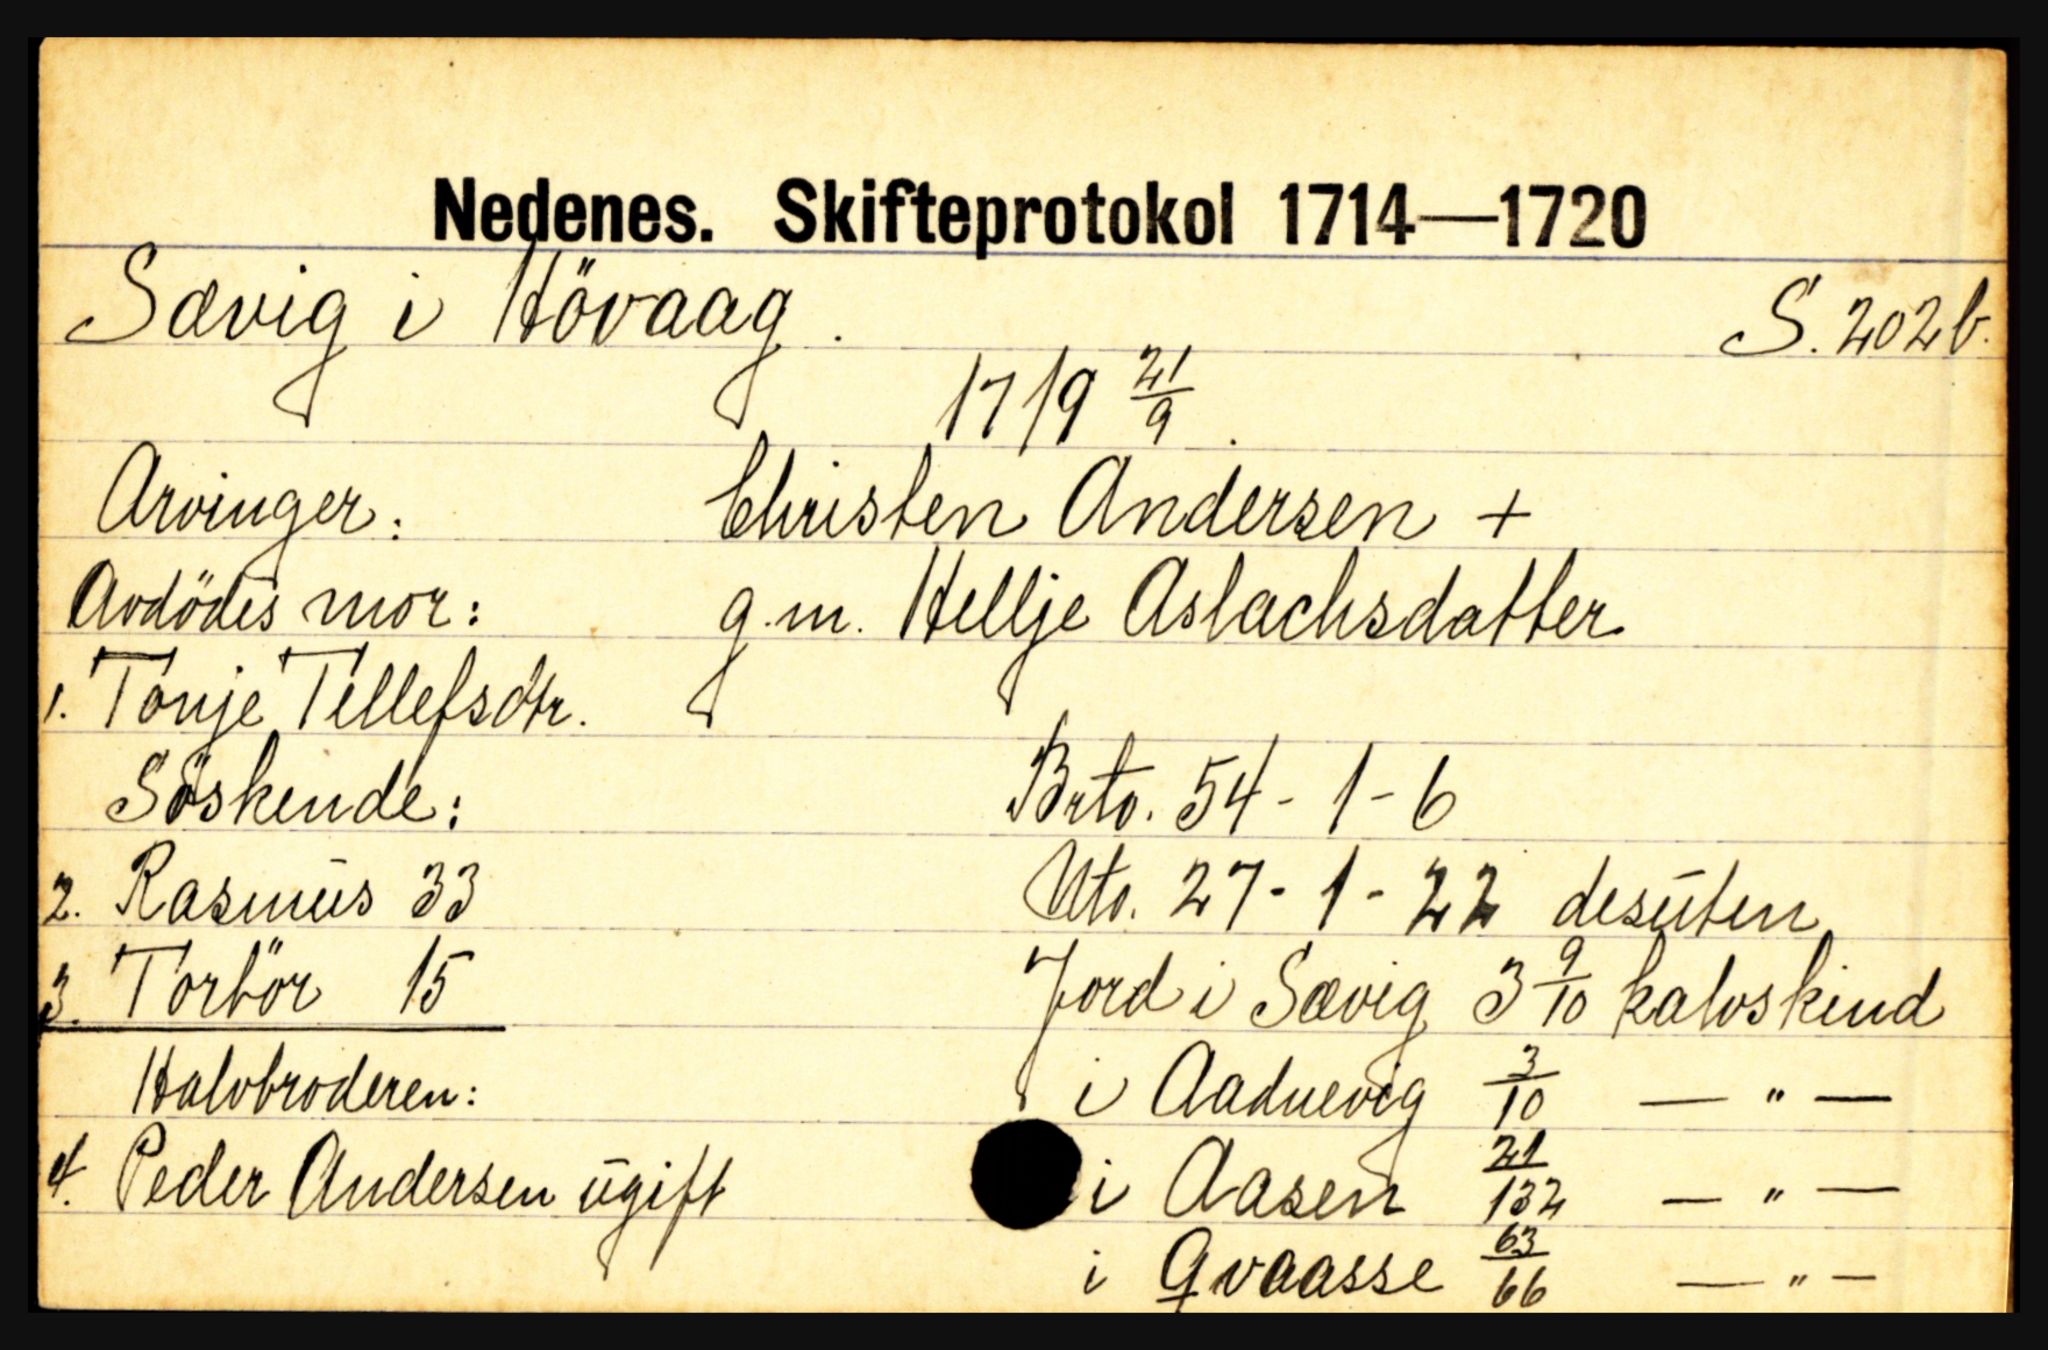 Nedenes. Skifteprotokol 1714—1720
Sævig i Hövaag. S. 202b.
1719 21/9.
Arvinger: Christen Andersen +
Avdödes mor: g.m. Hellje Aslachsdatter
1. Tonje Tellefsdtr.
Söskende: Brto. 54 - 1 - 6
2. Rasmus 33 Nto. 27 - 1 - 22 desuten
3. Torbör 15 Jord i Sævig 3 9/10 kalvskind
Halvbroderen: i Aadnevig 3/10 — " —
4. Peder Andersen ugift i Aasen 21/132 — " —
i Qvaasse 63/66 — " —